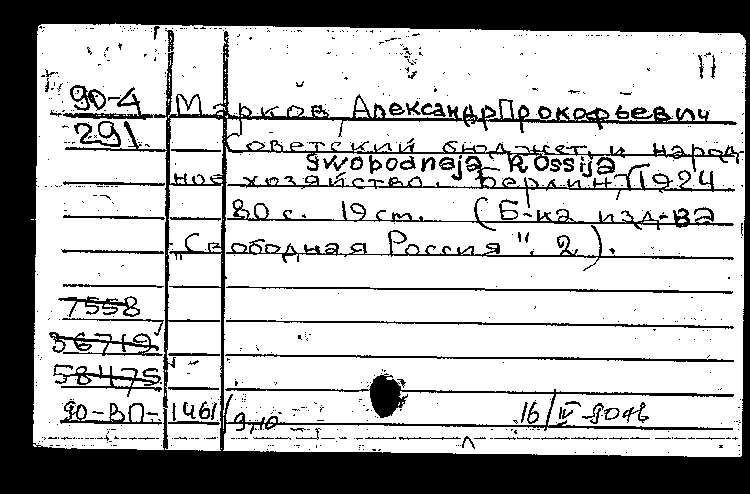 П
90-4 Марков, Александр Прокофьевич
291 Советский бюджет и народ-
Swobodnaja Rossija
ное хозяйство. Берлин, 1924
80 с. 19 см. (Б-ка изд-ва
„Свободная Россия". 2).
7558
36719
58475
90-ВП-1461/ 9,10 16/IV-90